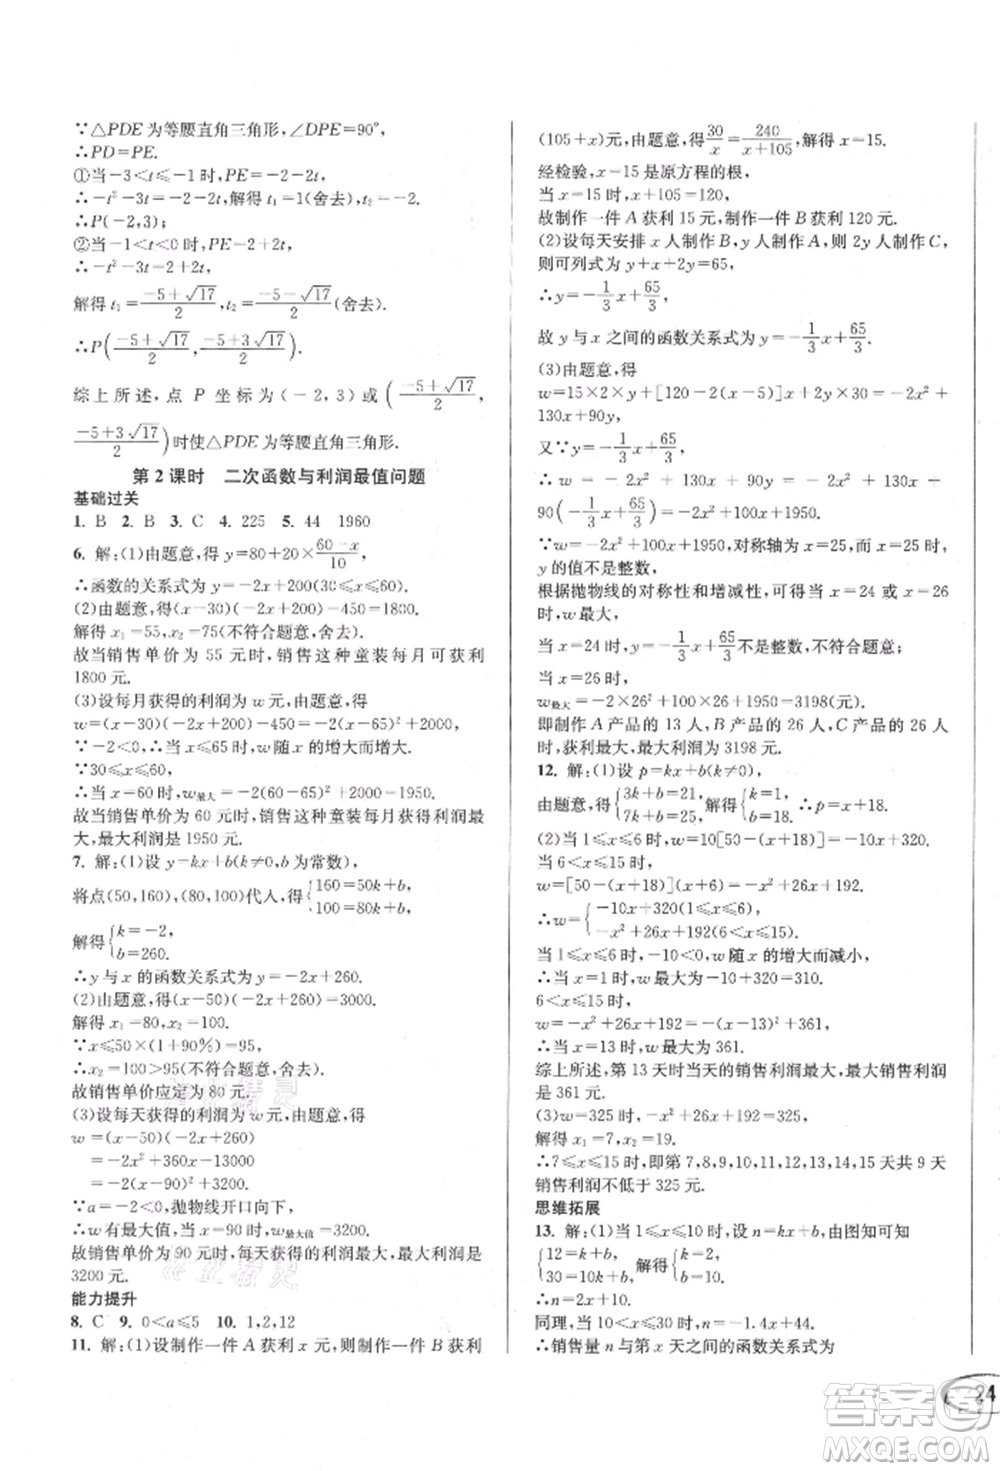 ∵△PDE 为等腰直角三角形,∠DPE=90°,
∴PD=PE.
①当-3<t≤-1 时,PE=-2-2t,
∴-t²-3t=-2-2t,解得 t₁=1(舍去),t₂=-2.
∴P(-2,3)
②当-1<t<0 时,PE=2+2t,
∴-t²-3t=2+2t,
解得 t₁=(-5+√17)/2,t₂=(-5-√17)/2(舍去).
∴P((-5+√17)/2,(-5+3√17)/2).
综上所述,点 P 坐标为(-2,3)或((-5+√17)/2,
(-5+3√17)/2)时使△PDE 为等腰直角三角形.
第 2 课时 二次函数与利润最值问题
基础过关
1. B 2. B 3. C 4. 225 5. 44 1960
6. 解:(1)由题意,得 y=80+20×(60-x)/10,
∴函数的关系式为 y=-2x+200(30≤x≤60).
(2)由题意,得(x-30)(-2x+200)-450=1800.
解得 x₁=55,x₂=75(不符合题意,舍去).
故当销售单价为 55 元时,销售这种童装每月可获利
1800 元.
(3)设每月获得的利润为 w 元,由题意,得
w=(x-30)(-2x+200)-450=-2(x-65)²+2000.
∵-2<0,∴当 x≤65 时,w 随 x 的增大而增大.
∵30≤x≤60,
∴当 x=60 时,w最大=-2(60-65)²+2000=1950.
故当销售单价为 60 元时,销售这种童装每月获得利润
最大,最大利润是 1950 元.
7. 解:(1)设 y=kx+b(k≠0,b 为常数),
将点(50,160),(80,100)代人,得{160=50k+b, 100=80k+b.
解得{k=-2, b=260.
∴y 与 x 的函数关系式为 y=-2x+260.
(2)由题意,得(x-50)(-2x+260)=3000.
解得 x₁=80,x₂=100.
∵x≤50×(1+90%)=95,
∴x₂=100>95(不符合题意,舍去).
故销售单价应定为 80 元.
(3)设每天获得的利润为 w 元,由题意,得
w=(x-50)(-2x+260)
=-2x²+360x-13000
=-2(x-90)²+3200.
∵a=-2<0,抛物线开口向下,
∴w 有最大值,当 x=90 时,w最大值=3200.
故销售单价为 90 元时,每天获得的利润最大,最大利润是
3200 元.
能力提升
8. C 9. 0<a≤5 10. 1,2,12
11. 解:(1)设制作一件 A 获利 x 元,则制作一件 B 获利
(105+x)元,由题意,得30/x=240/(x+105),解得 x=15.
经检验,x=15 是原方程的根,
当 x=15 时,x+105=120,
故制作一件 A 获利 15 元,制作一件 B 获利 120 元.
(2)设每天安排 x 人制作 B,y 人制作 A,则 2y 人制作 C,
则可列式为 y+x+2y=65,
∴y=-1/3x+65/3.
故 y 与 x 之间的函数关系式为 y=-1/3x+65/3.
(3)由题意,得
w=15×2×y+[120-2(x-5)]x+2y×30=-2x²+
130x+90y,
又∵y=-1/3x+65/3,∴w=-2x²+130x+90y=-2x²+130x+
90(-1/3x+65/3)=-2x²+100x+1950.
∵w=-2x²+100x+1950,对称轴为 x=25,而 x=25 时,
y 的值不是整数,
根据抛物线的对称性和增减性可得,当 x=24 或 x=26
时,w最大,
当 x=24 时,y=-1/3x+65/3不是整数,不符合题意,舍去;
当 x=26 时,
w最大=-2×26²+100×26+1950=3198(元).
即制作 A 产品的 13 人,B 产品的 26 人,C 产品的 26 人
时,获利最大,最大利润为 3198 元.
12. 解:(1)设 p=kx+b(k≠0),
由题意,得{3k+b=21, 7k+b=25.解得{k=1, b=18.∴p=x+18.
(2)当 1≤x≤6 时,w=10[50-(x+18)]=-10x+320.
当 6<x≤15 时,
w=[50-(x+18)](x+6)=-x²+26x+192.
∴w={-10x+320(1≤x≤6), -x²+26x+192(6<x≤15).
当 1≤x≤6 时,∵-10<0,w 随 x 的增大而减小,
∴当 x=1 时,w 最大为-10+320=310.
6<x≤15 时,
w=-x²+26x+192=-(x-13)²+361.
∴当 x=13 时,w 最大为 361.
综上所述,第 13 天时当天的销售利润最大,最大销售利润
是 361 元.
(3)w=325 时,-x²+26x+192=325.
解得 x₁=7,x₂=19.
∴7≤x≤15 时,即第 7,8,9,10,11,12,13,14,15 天共 9 天
销售利润不低于 325 元.
思维拓展
13. 解:(1)当 1≤x≤10 时,设 n=kx+b,由图知可知
{12=k+b, 30=10k+b.解得{k=2, b=10.
∴n=2x+10.
同理,当 10<x≤30 时,n=-1.4x+44.
∴销售量 n 与第 x 天之间的函数关系式为
24
答案圈
MXQE.COM